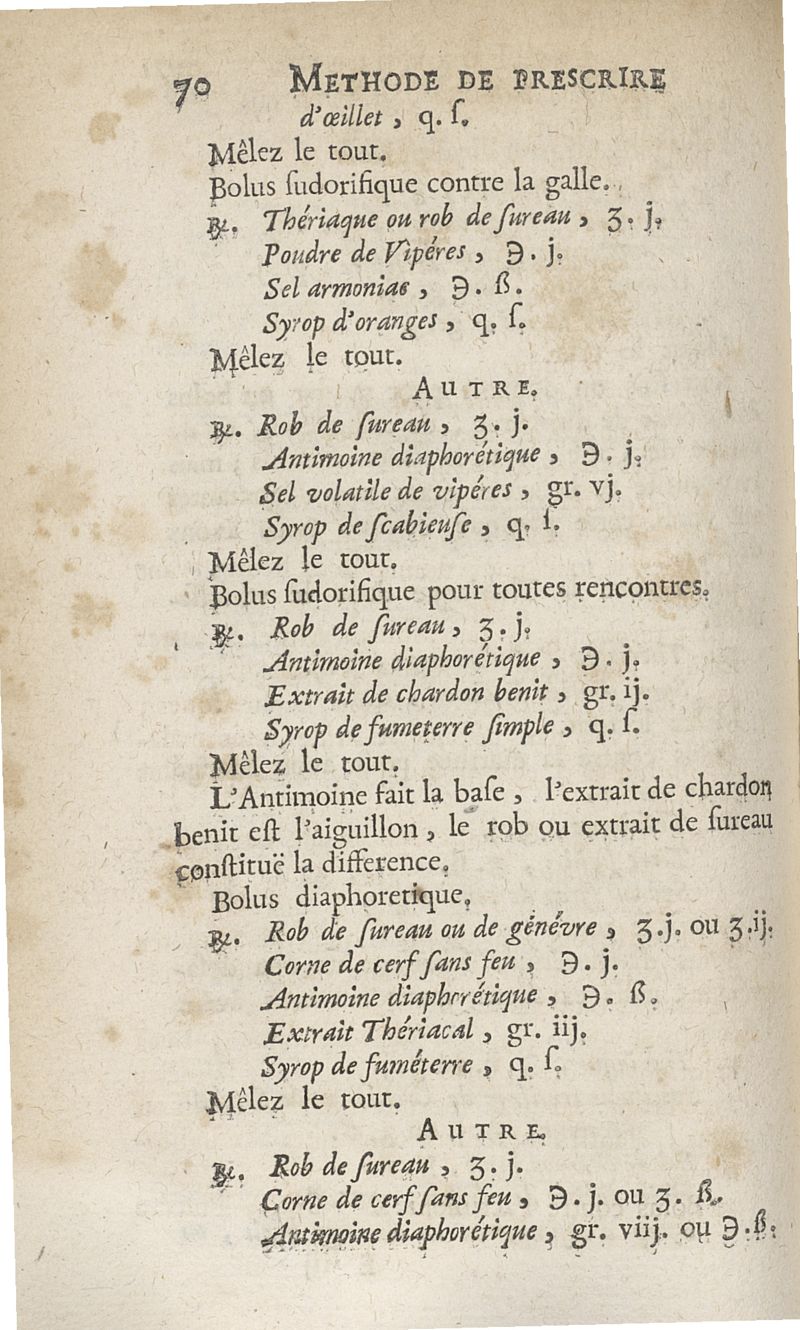 70 METHODE DE PRESCRIRE
d'œillet, q. ſ.
Mêlez le tout.
Bolus ſudorifique contre la galle.
℞. Thériaque ou rob de ſureau, ʒ. j.
Poudre de Vipéres, ℈. j.
Sel armoniac, ℈. ß.
Syrop d'oranges, q. ſ.
Mêlez le tout.
AUTRE.
℞. Rob de ſureau, ʒ. j.
Antimoine diaphorétique, ℈. j.
Sel volatile de vipéres, gr. vj.
Syrop de ſcabieuſe, q. ſ.
Mêlez le tout.
Bolus ſudorifique pour toutes rencontres.
℞. Rob de ſureau, ʒ. j.
Antimoine diaphorétique, ℈. j.
Extrait de chardon benit, gr. ij.
Syrop de fumeterre ſimple, q. ſ.
Mêlez le tout.
L'Antimoine fait la baſe, l'extrait de chardon
benit eſt l'aiguillon, le rob ou extrait de ſureau
conſtituë la difference.
Bolus diaphoretique.
℞. Rob de ſureau ou de génévre, ʒ. j. ou ʒ. ij.
Corne de cerf ſans feu, ℈. j.
Antimoine diaphorétique, ℈. ß.
Extrait Thériacal, gr. iij.
Syrop de fuméterre, q. ſ.
Mêlez le tout.
AUTRE.
℞. Rob de ſureau, ʒ. j.
Corne de cerf ſans feu, ℈. j. ou ʒ. ß.
Antimoine diaphorétique, gr. viij. ou ℈. ß.